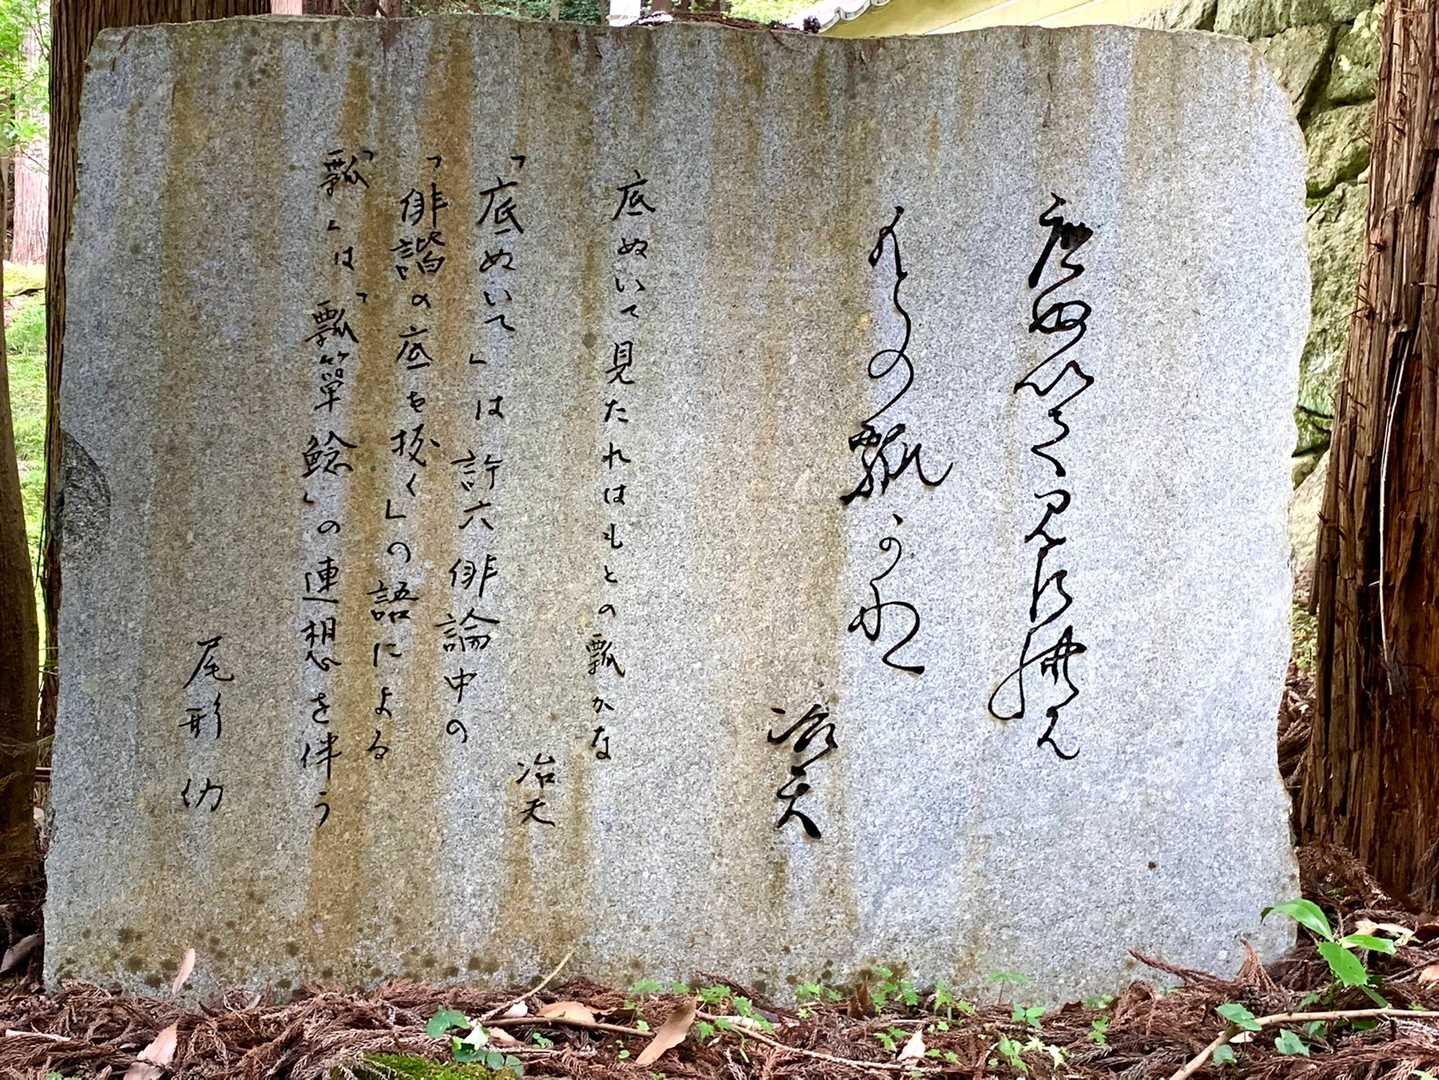 底ぬいて見たれは
もとの瓢かな
冶天
底ぬいて見たれはもとの瓢かな
冶天
「底ぬいて」は許六俳論中の
「俳諧の底を抜く」の語による
「瓢」は「瓢箪鯰」の連想を伴う
尾形仂